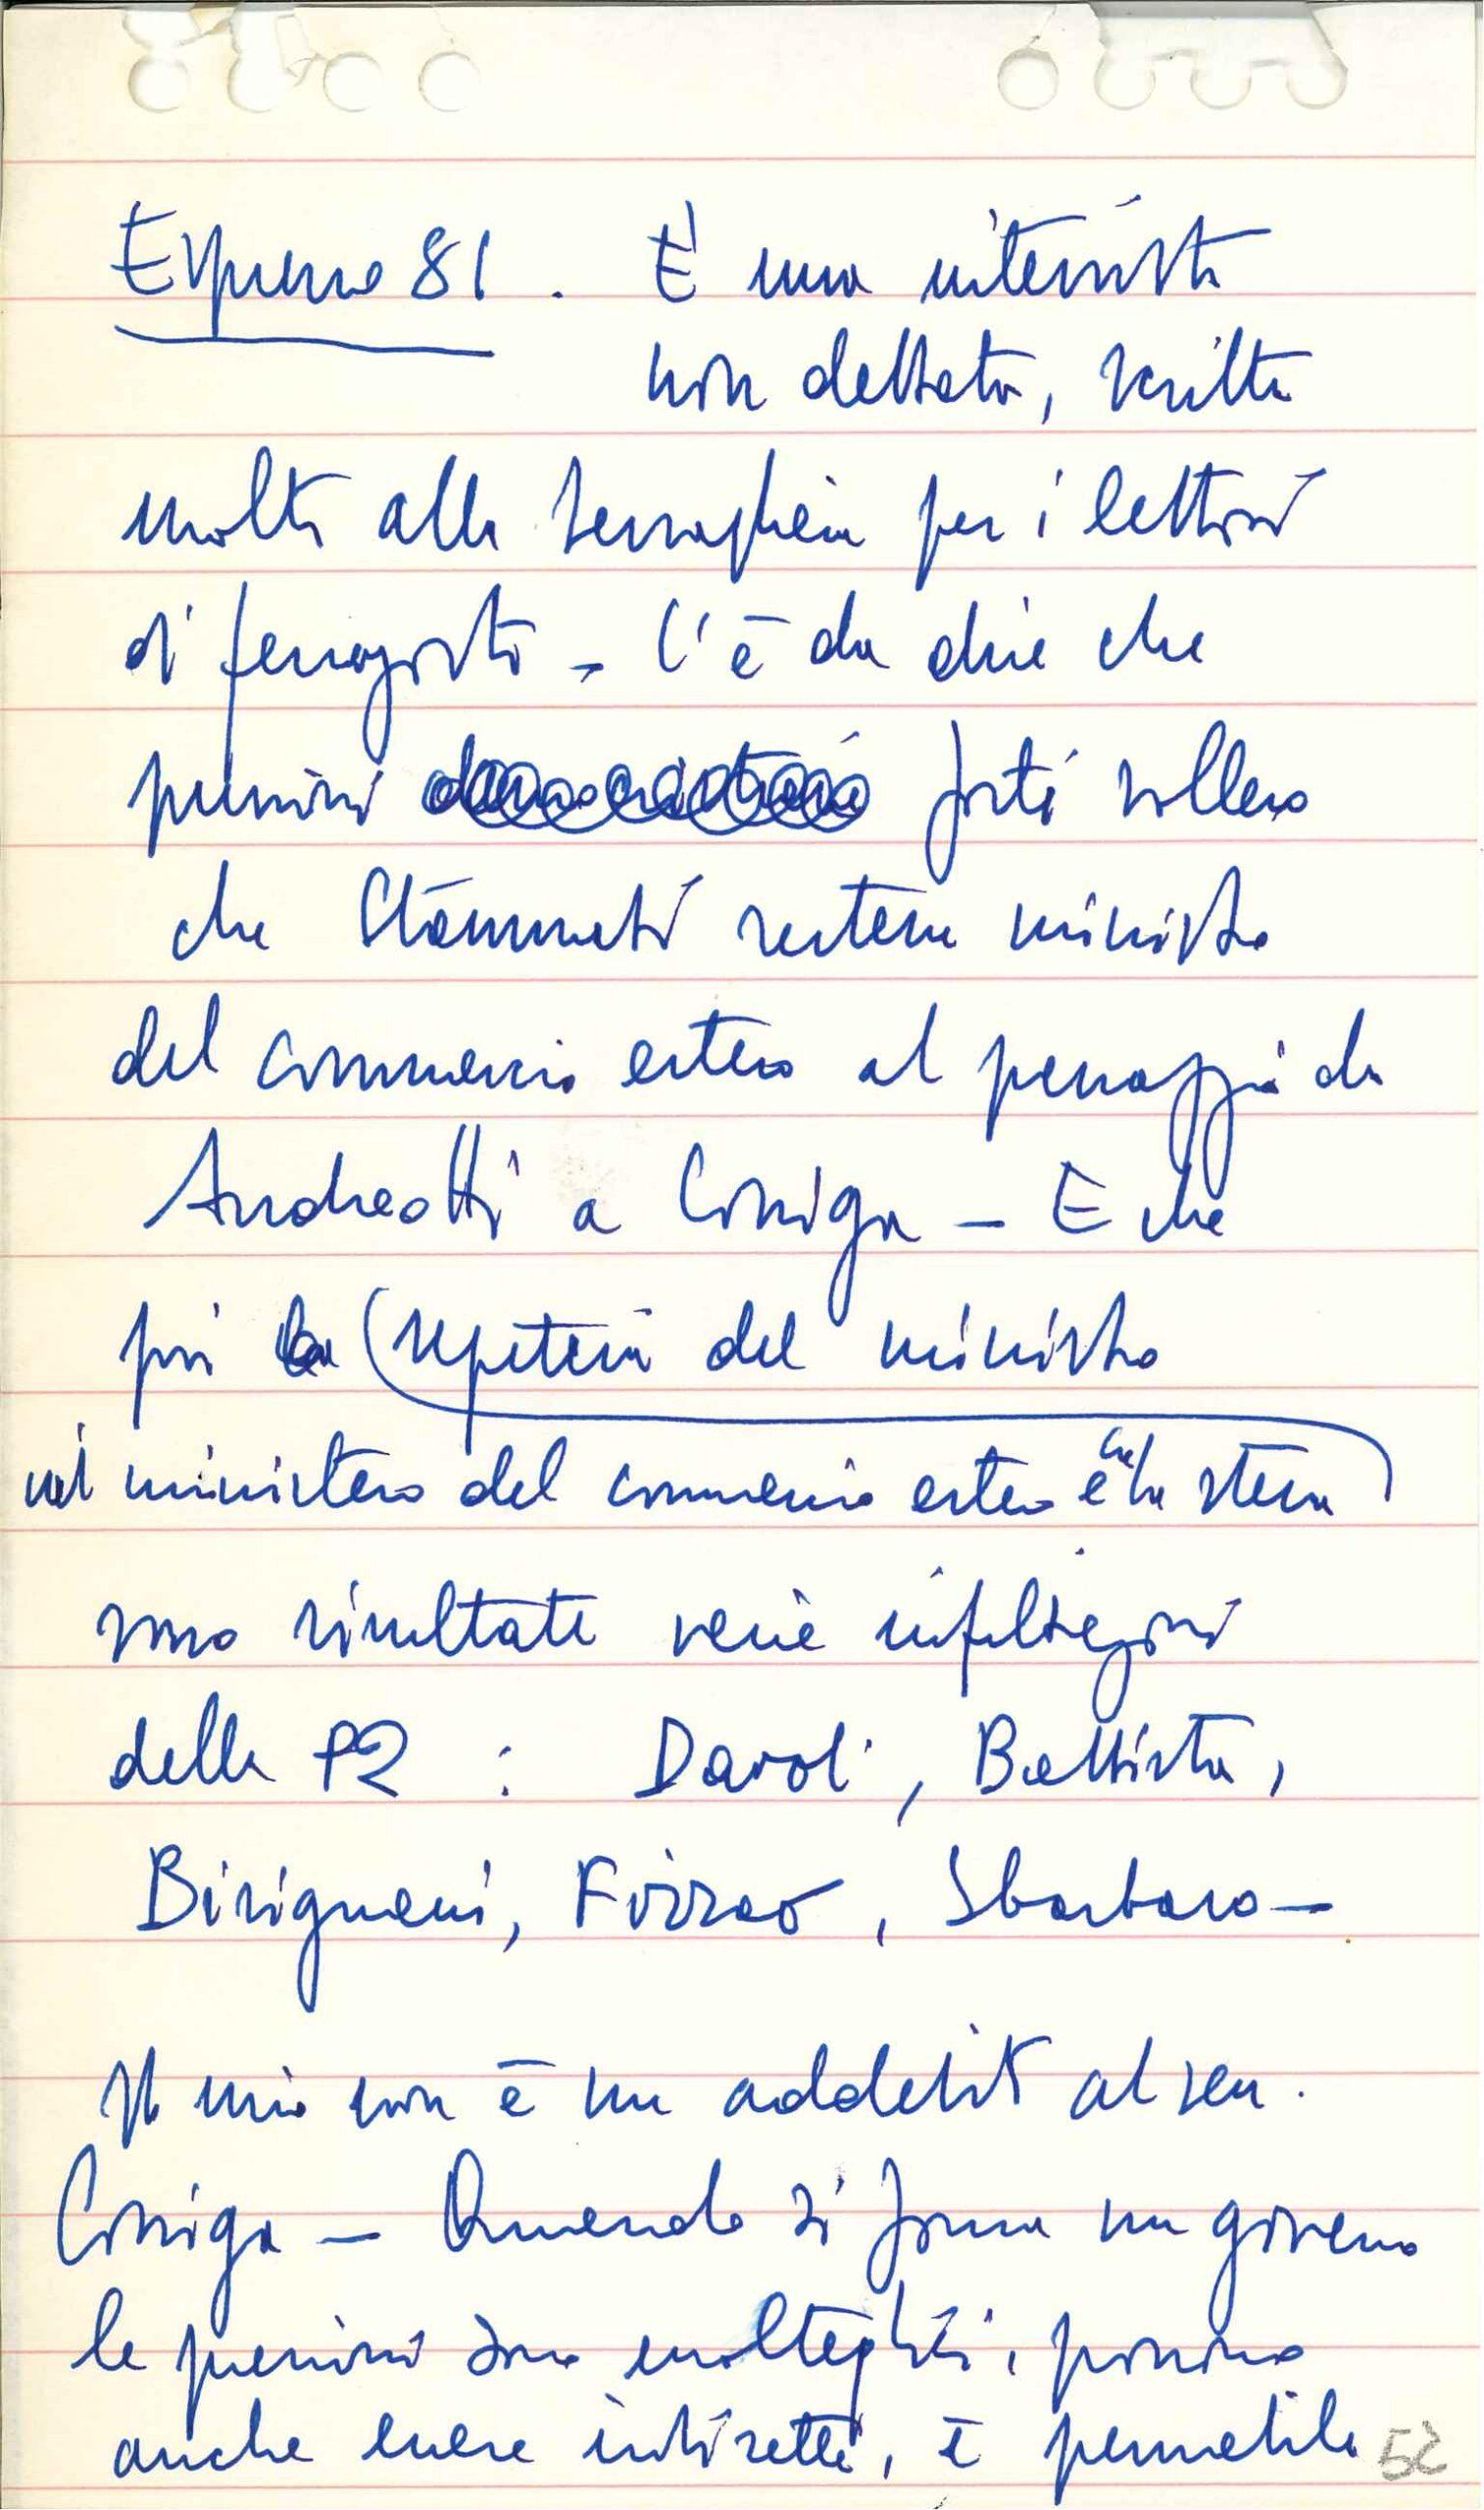 Espresso 81. È una intervista
non dettata, scritta
molto alla bersagliera per i lettori
di ferragosto - C'è da dire che
pressioni forti vollero
che Stammati restasse ministro
del commercio estero al passaggio da
Andreotti a Cossiga - E che
poi (segreteria del ministro
nel ministero del commercio estero e
sono risultate varie infiltrazioni
della P2 : Davoli, Battista,
Bisignani, Firrao, Sbarbaro -
Il mio non è un addebito al sen.
Cossiga - Quando si forma un governo
le pressioni sono molteplici, possono
anche essere indirette, è pensabile
52